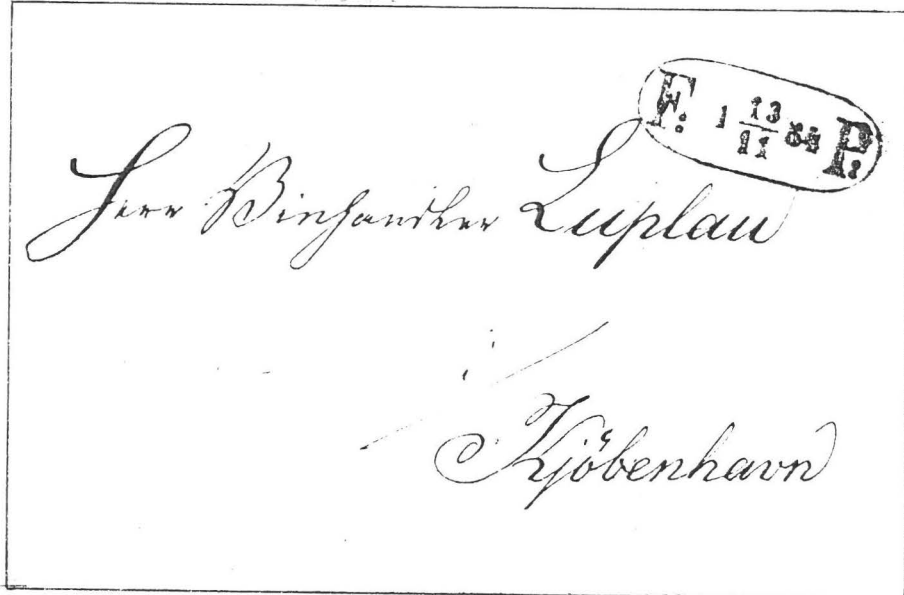 F: 1 13/11 54 P:
Herr Vinhandler Luplau
i
Kjöbenhavn